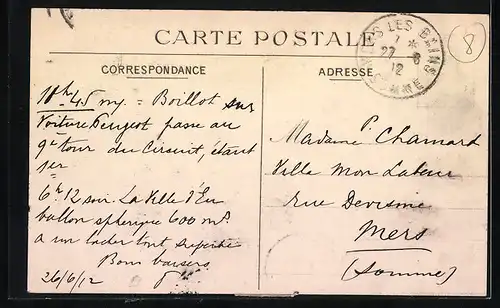 CARTE POSTALE
CORRESPONDANCE
ADRESSE
27 - 6
12
8
10h 45 my = Boillot sur
Voiture Peugeot passe au
9e tour du Circuit, étant
1er
=
6h 12 soir. La Ville d'Eu
ballon spherique 600 m3
a un lacher tout superbe
Bons baisers
26/6/12
Madame P. Chamard
Ville Mon Labeur
rue Devisme
Mers
(Somme)